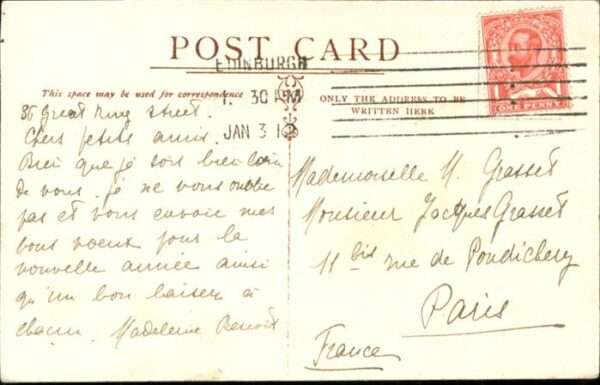 POST CARD
EDINBURGH
1. 30 PM
JAN 3 13
ONE PENNY
This space may be used for correspondence
ONLY THE ADDRESS TO BE
WRITTEN HERE
36 great King street.
Chers petits amis.
Bien que je sois bien loin
de vous, je ne vous oublie
pas et vous envoie mes
bons voeux pour la
nouvelle année ainsi
qu'un bon baiser à
chacun. Madeleine Benoit
Mademoiselle M. Grasset
Monsieur Jacques Grasset
11 bis rue de Pondichery
Paris
France